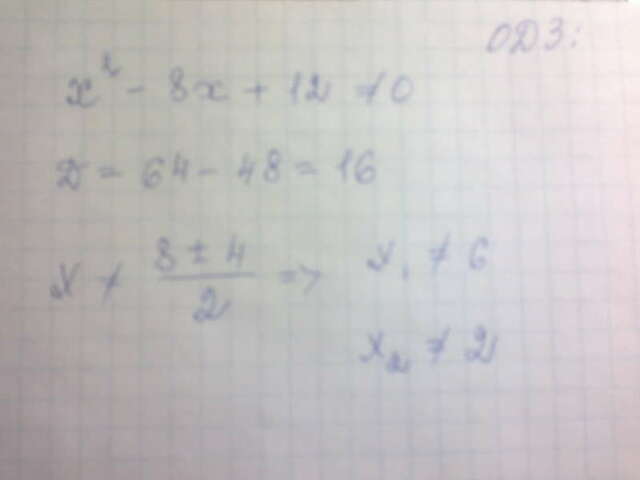 ОДЗ:
x² - 8x + 12 ≠ 0
D = 64 - 48 = 16
x ≠ (8 ± 4)/2 => x₁ ≠ 6
x₂ ≠ 2